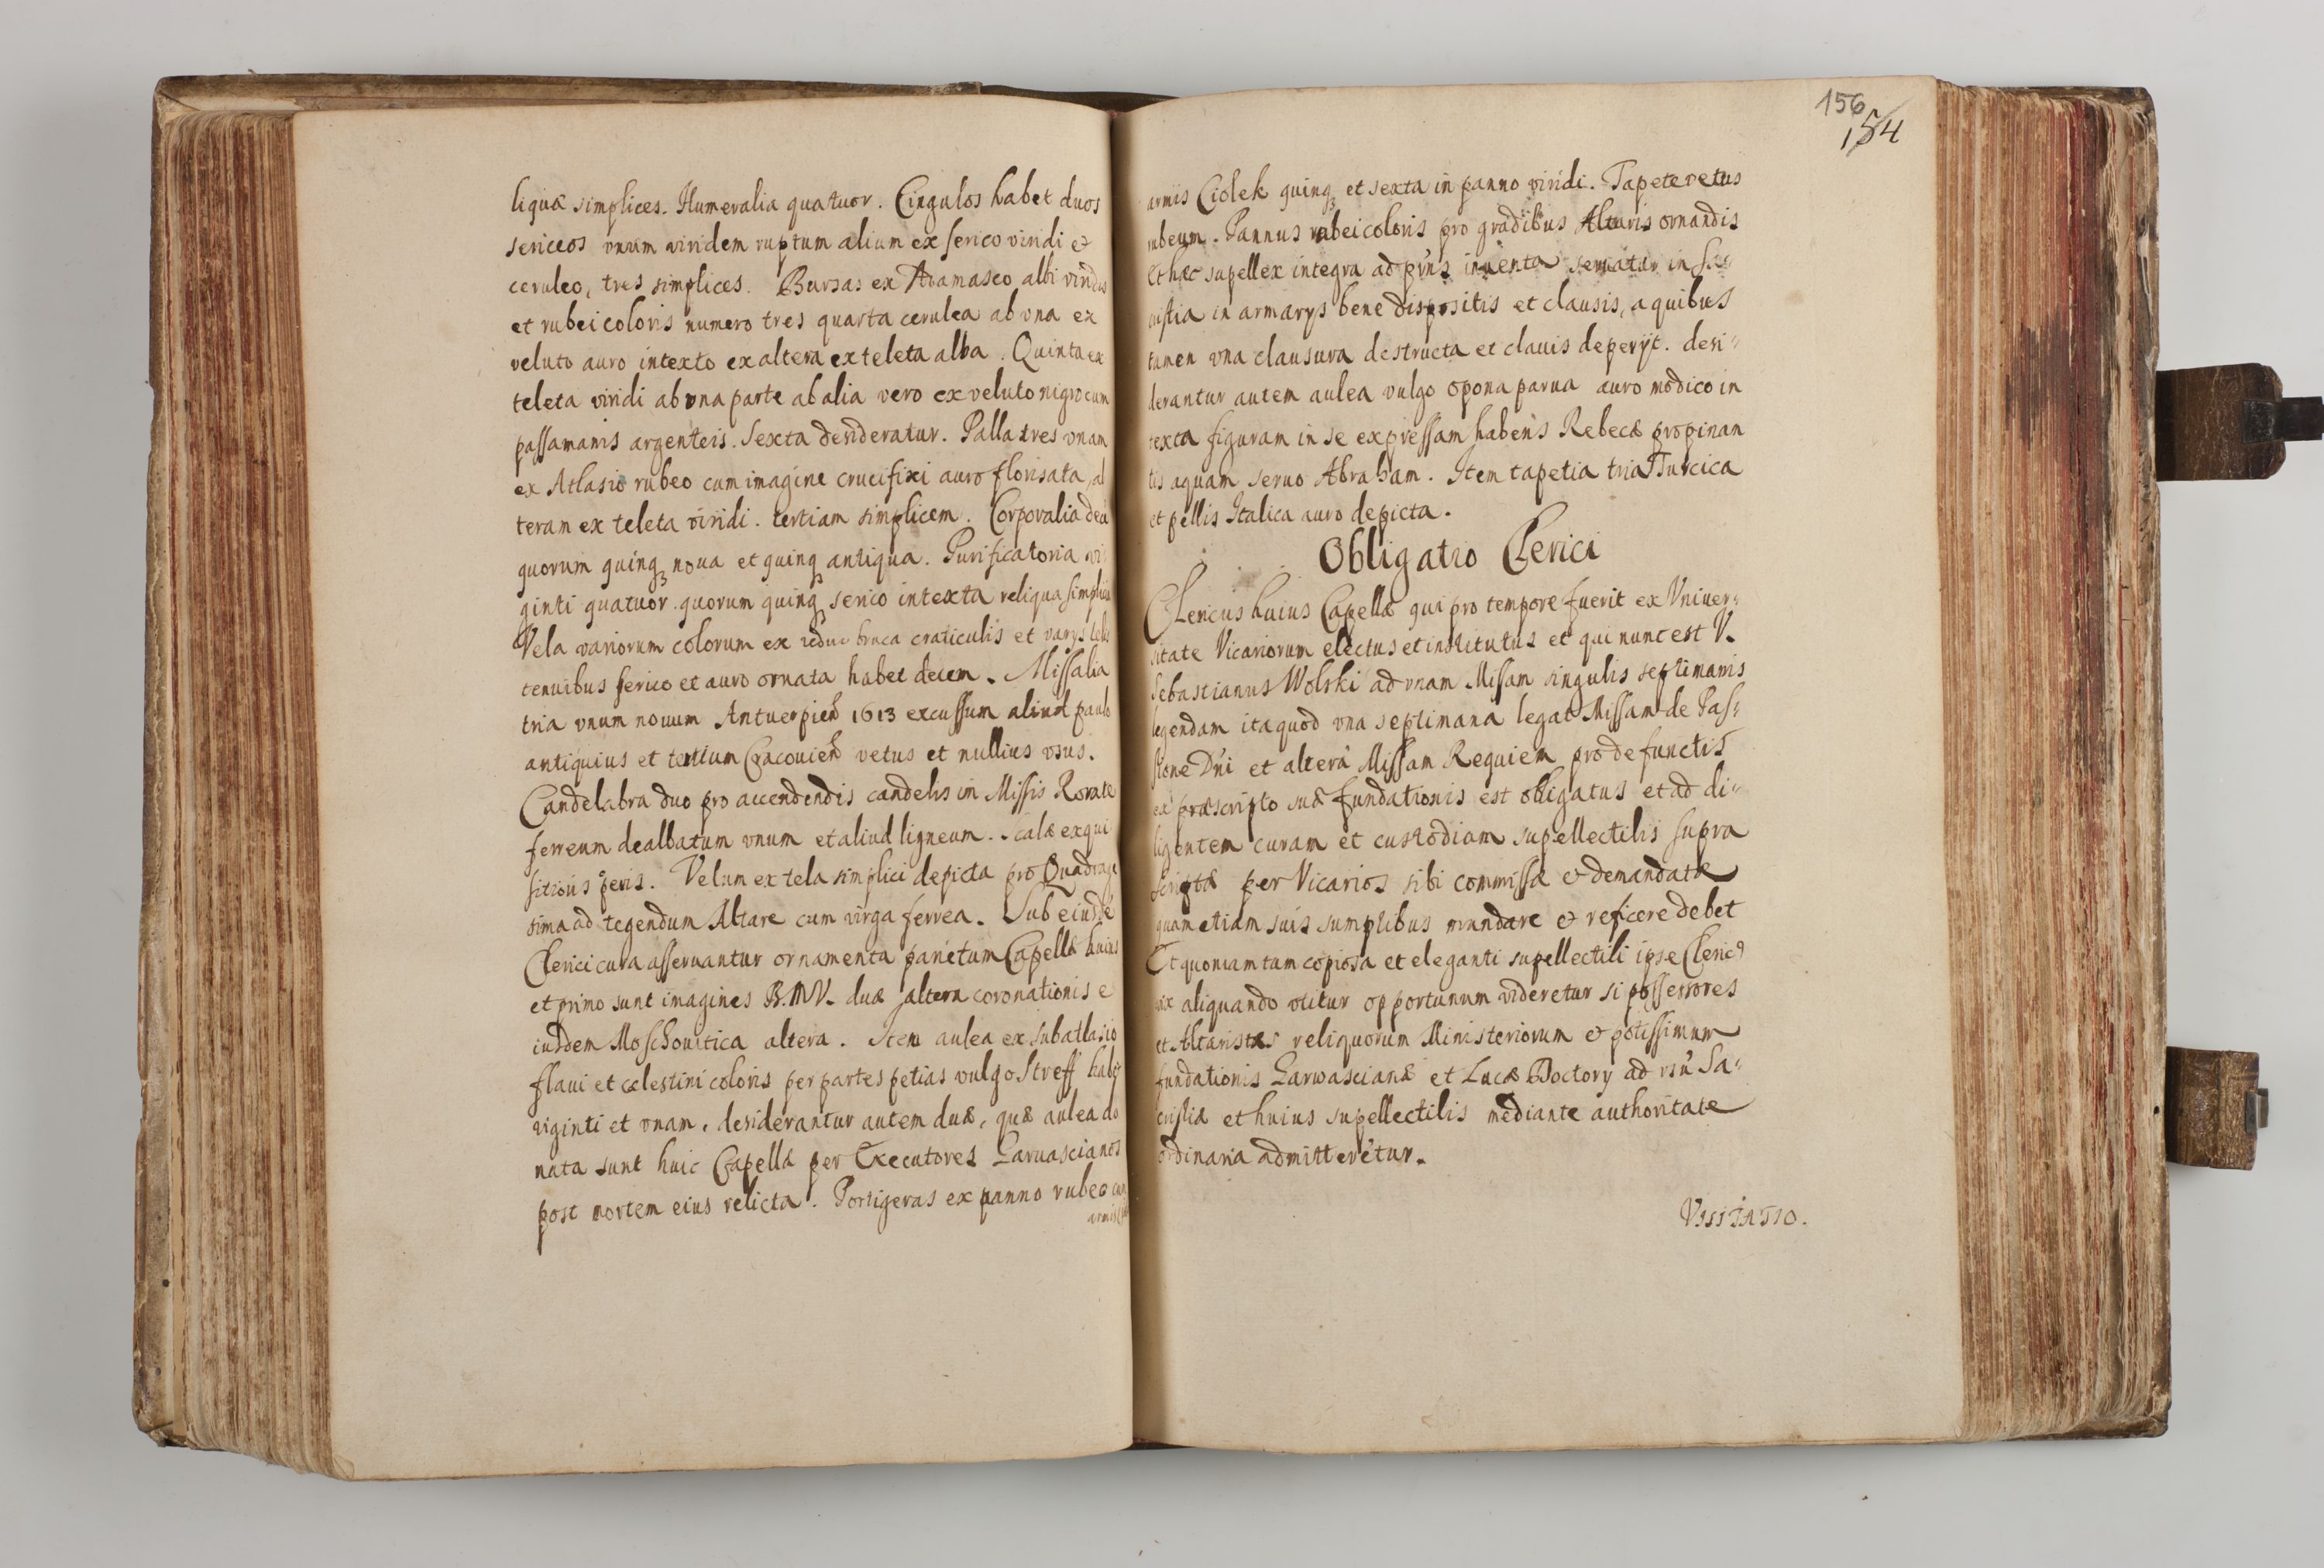 liquæ simplices. Humeralia quatuor. Cingulos habet duos
sericeos vnum viridem ruptum alium ex serico viridi et
ceruleo, tres simplices. Bursas ex Adamasco albi viridis
et rubei coloris numero tres quarta cerulea ab vna ex
veluto auro intexto ex altera ex teleta alba. Quinta ex
teleta viridi ab vna parte ab alia vero ex veluto nigro cum
passamanis argenteis. Sexta desideratur. Palla tres vnam
ex Atlasio rubeo cum imagine crucifixi auro florisata, al
teram ex teleta viridi. tertiam simplicem. Corporalia
quorum quinq3 noua et quinq3 antiqua. Purificatoria vi
ginti quatuor quorum quinq3 serico intexta reliqua
Vela variorum colorum ex craticulis et varys
tenuibus serico et auro ornata habet decem. Missalia
tria vnum nouum Antuerpień 1613 excussum aliud paulo
antiquius et tertium Cracouień vetus et nullius vsus.
Candelabra duo pro accendendis candelis in Missis Rorate
ferreum dealbatum vnum et aliud ligneum. Scalæ exqui
Velum ex tela simplici depicta pro Quadrage
sima ad tegendum Altare cum virga ferrea. Sub
Clerici cura asseruantur ornamenta parietum Capellæ huius
et primo sunt imagines B.M.V. duæ altera coronationis e
iusdem Moschouitica altera. Item aulea ex subatlasio
flaui et cælestini coloris per partes petias vulgo Streff
viginti et vnam, desiderantur autem duæ, quæ aulea do
nata sunt huic Capellæ per Executores Garuascianos
post mortem eius relicta. Portigeras ex panno rubeo
156
154
armis Ciołek quinq3 et sexta in panno viridi. Tapete vetus
rubeum. Pannus rubei coloris pro gradibus Altaris ornandis
Et hæc supellex integra ad inuenta seruatur in Sa-
cristia in armarys bene dispositis et clausis, a quibus
tamen vna clausura destructa et clauis deperijt. desi-
derantur autem aulea vulgo opona parua auro modico in
texta figuram in se expressam habens Rebecæ propinan
tis aquam seruo Abraham. Item tapetia tria Turcica
et pellis Italica auro depicta.
Obligatio Clerici
Clericus huius Capellæ qui pro tempore fuerit ex Vniuer-
sitate Vicariorum electus et institutus et qui nunc est V.
Sebastianus Wolski ad vnam Missam singulis septimanis
legendam ita quod vna septimana legat Missam de Pas-
sione Dńi et altera Missam Requiem pro defunctis
ex præscripto suæ fundationis est obligatus et ad di-
ligentem curam et custodiam supellectilis supra
scriptæ per Vicarios sibi commissæ et demandatæ
quam etiam suis sumptibus mundare et reficere debet
Et quoniam tam copiosa et eleganti supellectili ipse Cleric9
vix aliquando vtitur opportunum videretur si possessores
et Altaristæ reliquorum Ministeriorum et potissimum
fundationis Garwascianæ et Lucæ Doctory ad vsũ Sa-
cristiæ et huius supellectilis mediante authoritate
ordinaria admitteretur.
Visitatio.